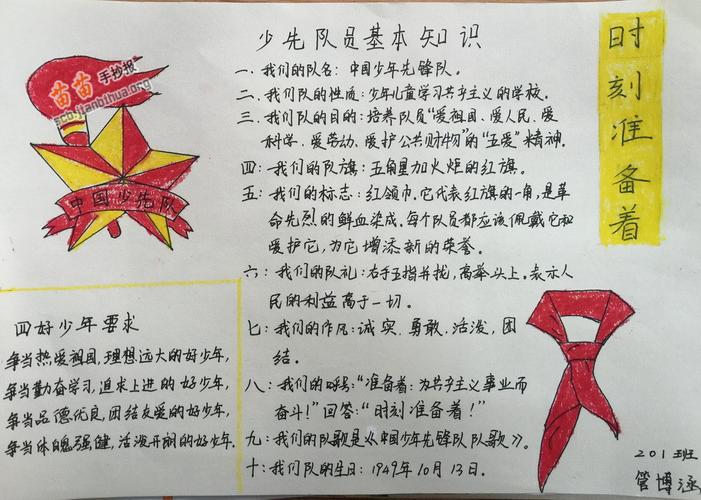 少先队员基本知识
一、我们的队名：中国少年先锋队。
二、我们队的性质：少年儿童学习共产主义的学校。
三、我们队的目的：培养队员“爱祖国、爱人民、爱
科学、爱劳动、爱护公共财物”的“五爱”精神。
四：我们的队旗：五角星加火炬的红旗。
五：我们的标志：红领巾。它代表红旗的一角，是革
命先烈的鲜血染成。每个队员都应该佩戴它和
爱护它，为它增添新的荣誉。
六：我们的队礼：右手五指并拢，高举头上。表示人
民的利益高于一切。
七：我们的作风：诚实、勇敢、活泼、团
结。
八：我们的呼号：“准备着：为共产主义事业而
奋斗！”回答：“时刻准备着！”
九：我们的队歌是《中国少年先锋队队歌》。
十：我们队的生日：1949年10月13日。
时刻准备着
苗苗手抄报
sco-jianbihua.org
中国少先队
四好少年要求
争当热爱祖国，理想远大的好少年，
争当勤奋学习，追求上进的好少年，
争当品德优良，团结友爱的好少年，
争当体魄强健，活泼开朗的好少年.
201班
管博涵